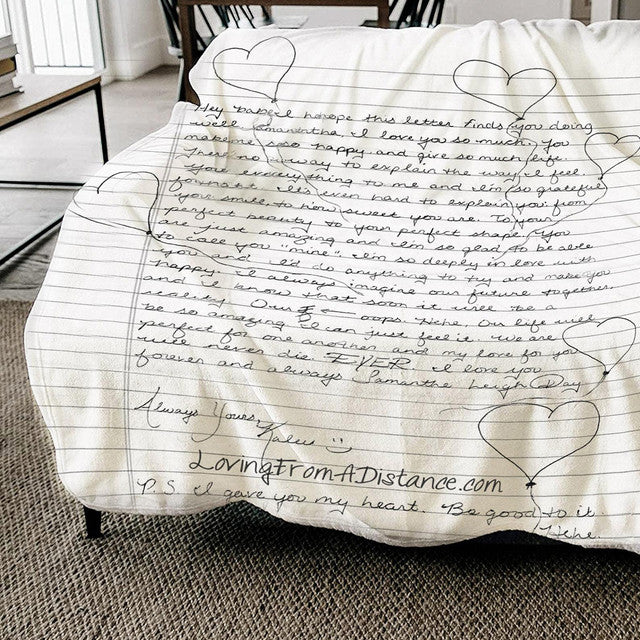 Hey babe I norope this letter finds you doing
well Samantha. I love you so much. You
make me soo happy and give so much life.
There no way to explain the way I feel.
You everything to me and I'm so grateful
for that. It's even hard to explain you from
your smile to how sweet you are. To your
perfect beauty to your perfect shape. You
are just amazing and I'm so glad to be able
to call you "mine". I'm so deeply in love with
you and I'd do anything to try and make you
happy. I always imagine our future together.
and I know that soon it will be a
reality. Our oops. Hehe. Our life will
be so amazing I can just feel it. We are
perfect for one another and my love for you
will never die EVER. I love you
forever and always Samantha Leigh Day
Always Yours,
Kaleu :)
LovingFromADistance.com
P.S. I gave you my heart. Be good to it
Hehe.